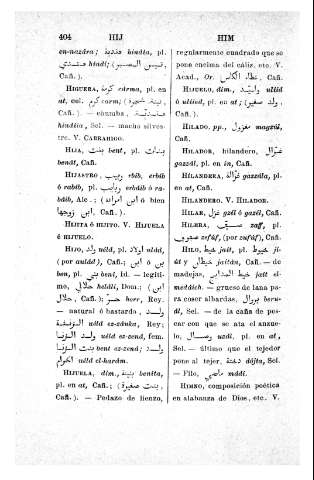 404 HIJ HIM
en-nazára; هندية hindía, pl.
هندى hindi; (تين النصير,
Cañ.).
HIGUERA, كرمة cárma, pl. en
at, col. كرم carm; (تينة شجرة,
Cañ.). — chumba,
hindía, Sel. — macho silves-
tre. V. CABRAHIGO.
HIJA, بنت bent, pl. بنات
benát, Cañ.
HIJASTRO, ربيب rbib, erbib
ó rabib, pl. ربايب erbáib ó ra-
báib, Ale.; (ابن امراته ó bien
ابن زوجها, Cañ.).
HIJITA ó HIJITO. V. HIJUELA
ó HIJUELO.
HIJO, ولد uld, pl. اولاد ulád,
(por aulád), Cañ.; ابن ó بن
ben, pl. بنى bení, Id. — legíti-
mo, حلالى haláli, Dom.; (ابن
حلال, Cañ.); حر horr, Rey.
— natural ó bastardo, ولد
الزنقة uld ez-zánka, Rey;
ولد الزنا uld ez-zená, fem.
بنت الزنا bent ez-zená; ولد
الحرام uld el-harám.
HIJUELA, dim., بنيتة benita,
pl. en at, Cañ.; (بنت صغيرة,
Cañ.). — Pedazo de lienzo,
regularmente cuadrado que se
pone encima del cáliz, etc. V.
Acad., Or. غطاء الكأس, Cañ.
HIJUELO, dim., وليد ulíid
ó ulíied, pl. en at; (ولد صغير,
Cañ.).
HILADO, pp., مغزول magzúl,
Cañ.
HILADOR, hilandero, غزال
gazzál, pl. en in, Cañ.
HILANDERA, غزالة gazzála, pl.
en at, Cañ.
HILANDERO. V. HILADOR.
HILAR, غزل gzél ó gazél, Cañ.
HILERA, صف zaff, pl.
صفوف zefúf, (por zufúf), Cañ.
HILO, خيط jait, pl. خيوط ji-
út y خيطان jaitán, Cañ. — de
madejas, خيط المدابج jait el-
medábich. — grueso de lana pa-
ra coser albardas, برزال
— de la caña de pes-
car con que se ata el anzue-
lo, وصال uzál, pl. en at,
Sel. — último que el tejedor
pone al tejer, دفتة
— Filo, ماضى mádi.
HIMNO, composición poética
en alabanza de Dios, etc. V.